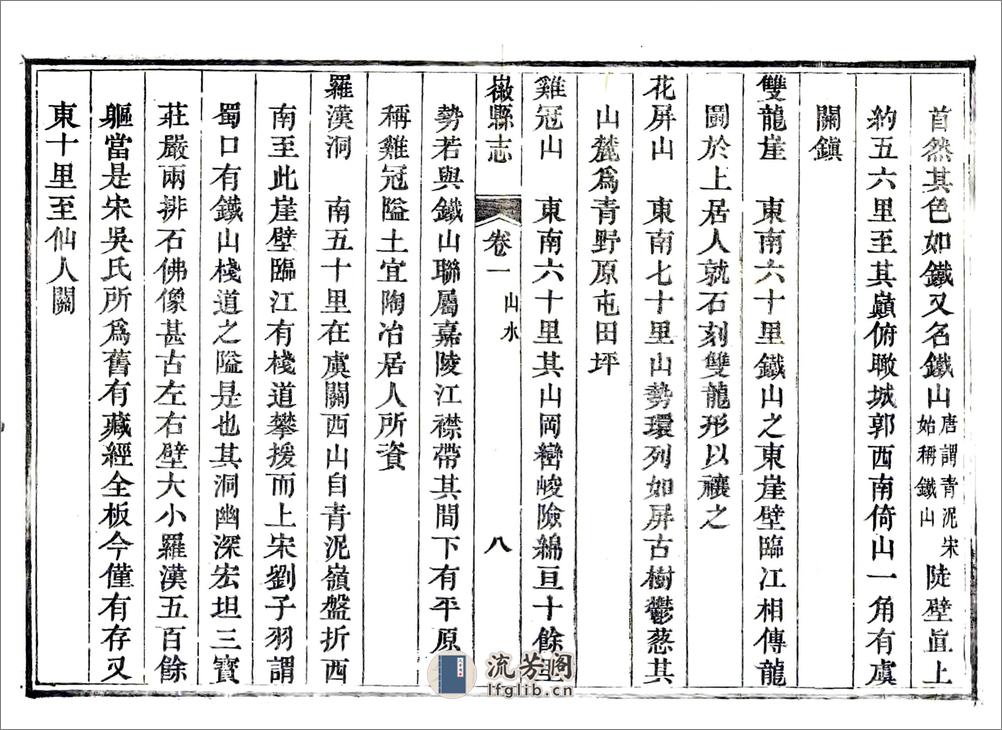 首然其色如鐵又名鐵山唐謂青泥宋始稱鐵山陡壁直上
約五六里至其巔俯瞰城郭西南倚山一角有虞
關鎮
雙龍崖　東南六十里鐵山之東崖壁臨江相傳龍
鬬於上居人就石刻雙龍形以禳之
花屏山　東南七十里山勢環列如屏古樹鬱葱其
山麓爲青野原屯田坪
雞冠山　東南六十里其山岡巒峻險綿亘十餘里
徽縣志　卷一　山水　八
勢若與鐵山聯屬嘉陵江襟帶其間下有平原
稱雞冠隘土宜陶冶居人所資
羅漢洞　南五十里在虞關西山自青泥嶺盤折西
南至此崖壁臨江有棧道攀援而上宋劉子羽謂
蜀口有鐵山棧道之隘是也其洞幽深宏坦三寶
莊嚴兩排石佛像甚古左右壁大小羅漢五百餘
軀當是宋吳氏所爲舊有藏經全板今僅有存又
東十里至仙人關
流芳阁
lfglib.cn